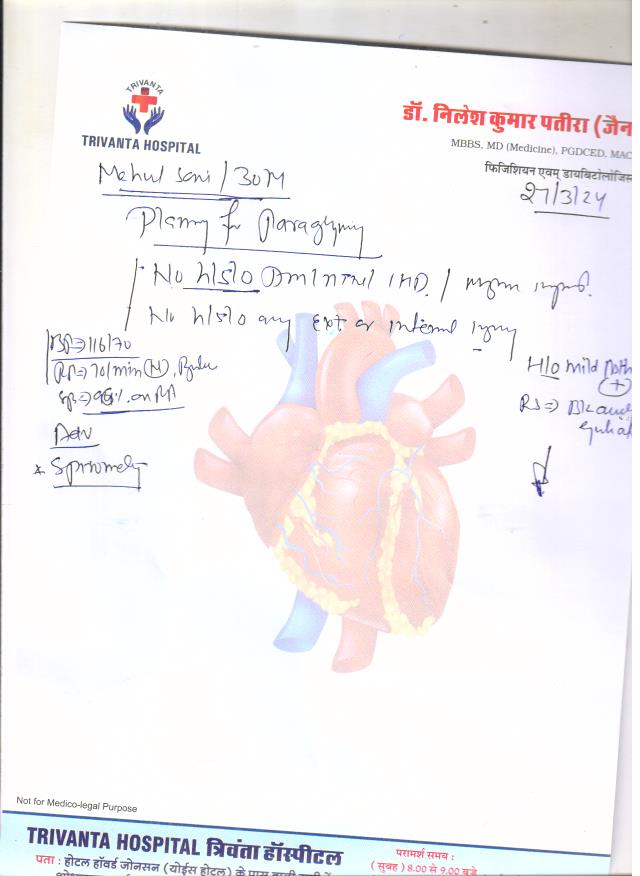 TRIVANTA
TRIVANTA HOSPITAL
डॉ. निलेश कुमार पतीरा (जैन
MBBS, MD (Medicine), PGDCED, MAC
फिजिशियन एवम् डायबिटोलॉजिस
27/3/24
Mehul Soni / 30M
Planning for
No h/s/o DM / NTN / IHD /
No h/s/o any Ext or internal injury
BP⇒116/70
PR⇒70/min (N)
on RA
H/o mild
(+)
RS⇒
Adv
* Spirometry
Not for Medico-legal Purpose
TRIVANTA HOSPITAL त्रिवंता हॉस्पीटल
पता : होटल हॉवर्ड जोनसन (योईस होटल) के पास
परामर्श समय :
( सुबह ) 8.00 से 9.00 बजे